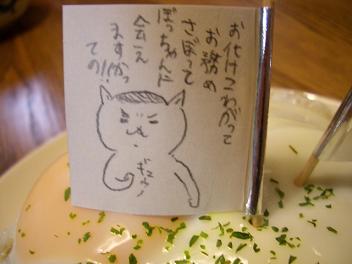 お化けこわがって
お務め
さぼって
ぼっちゃんに
会え
ますかっ
ての!!
ギュッ